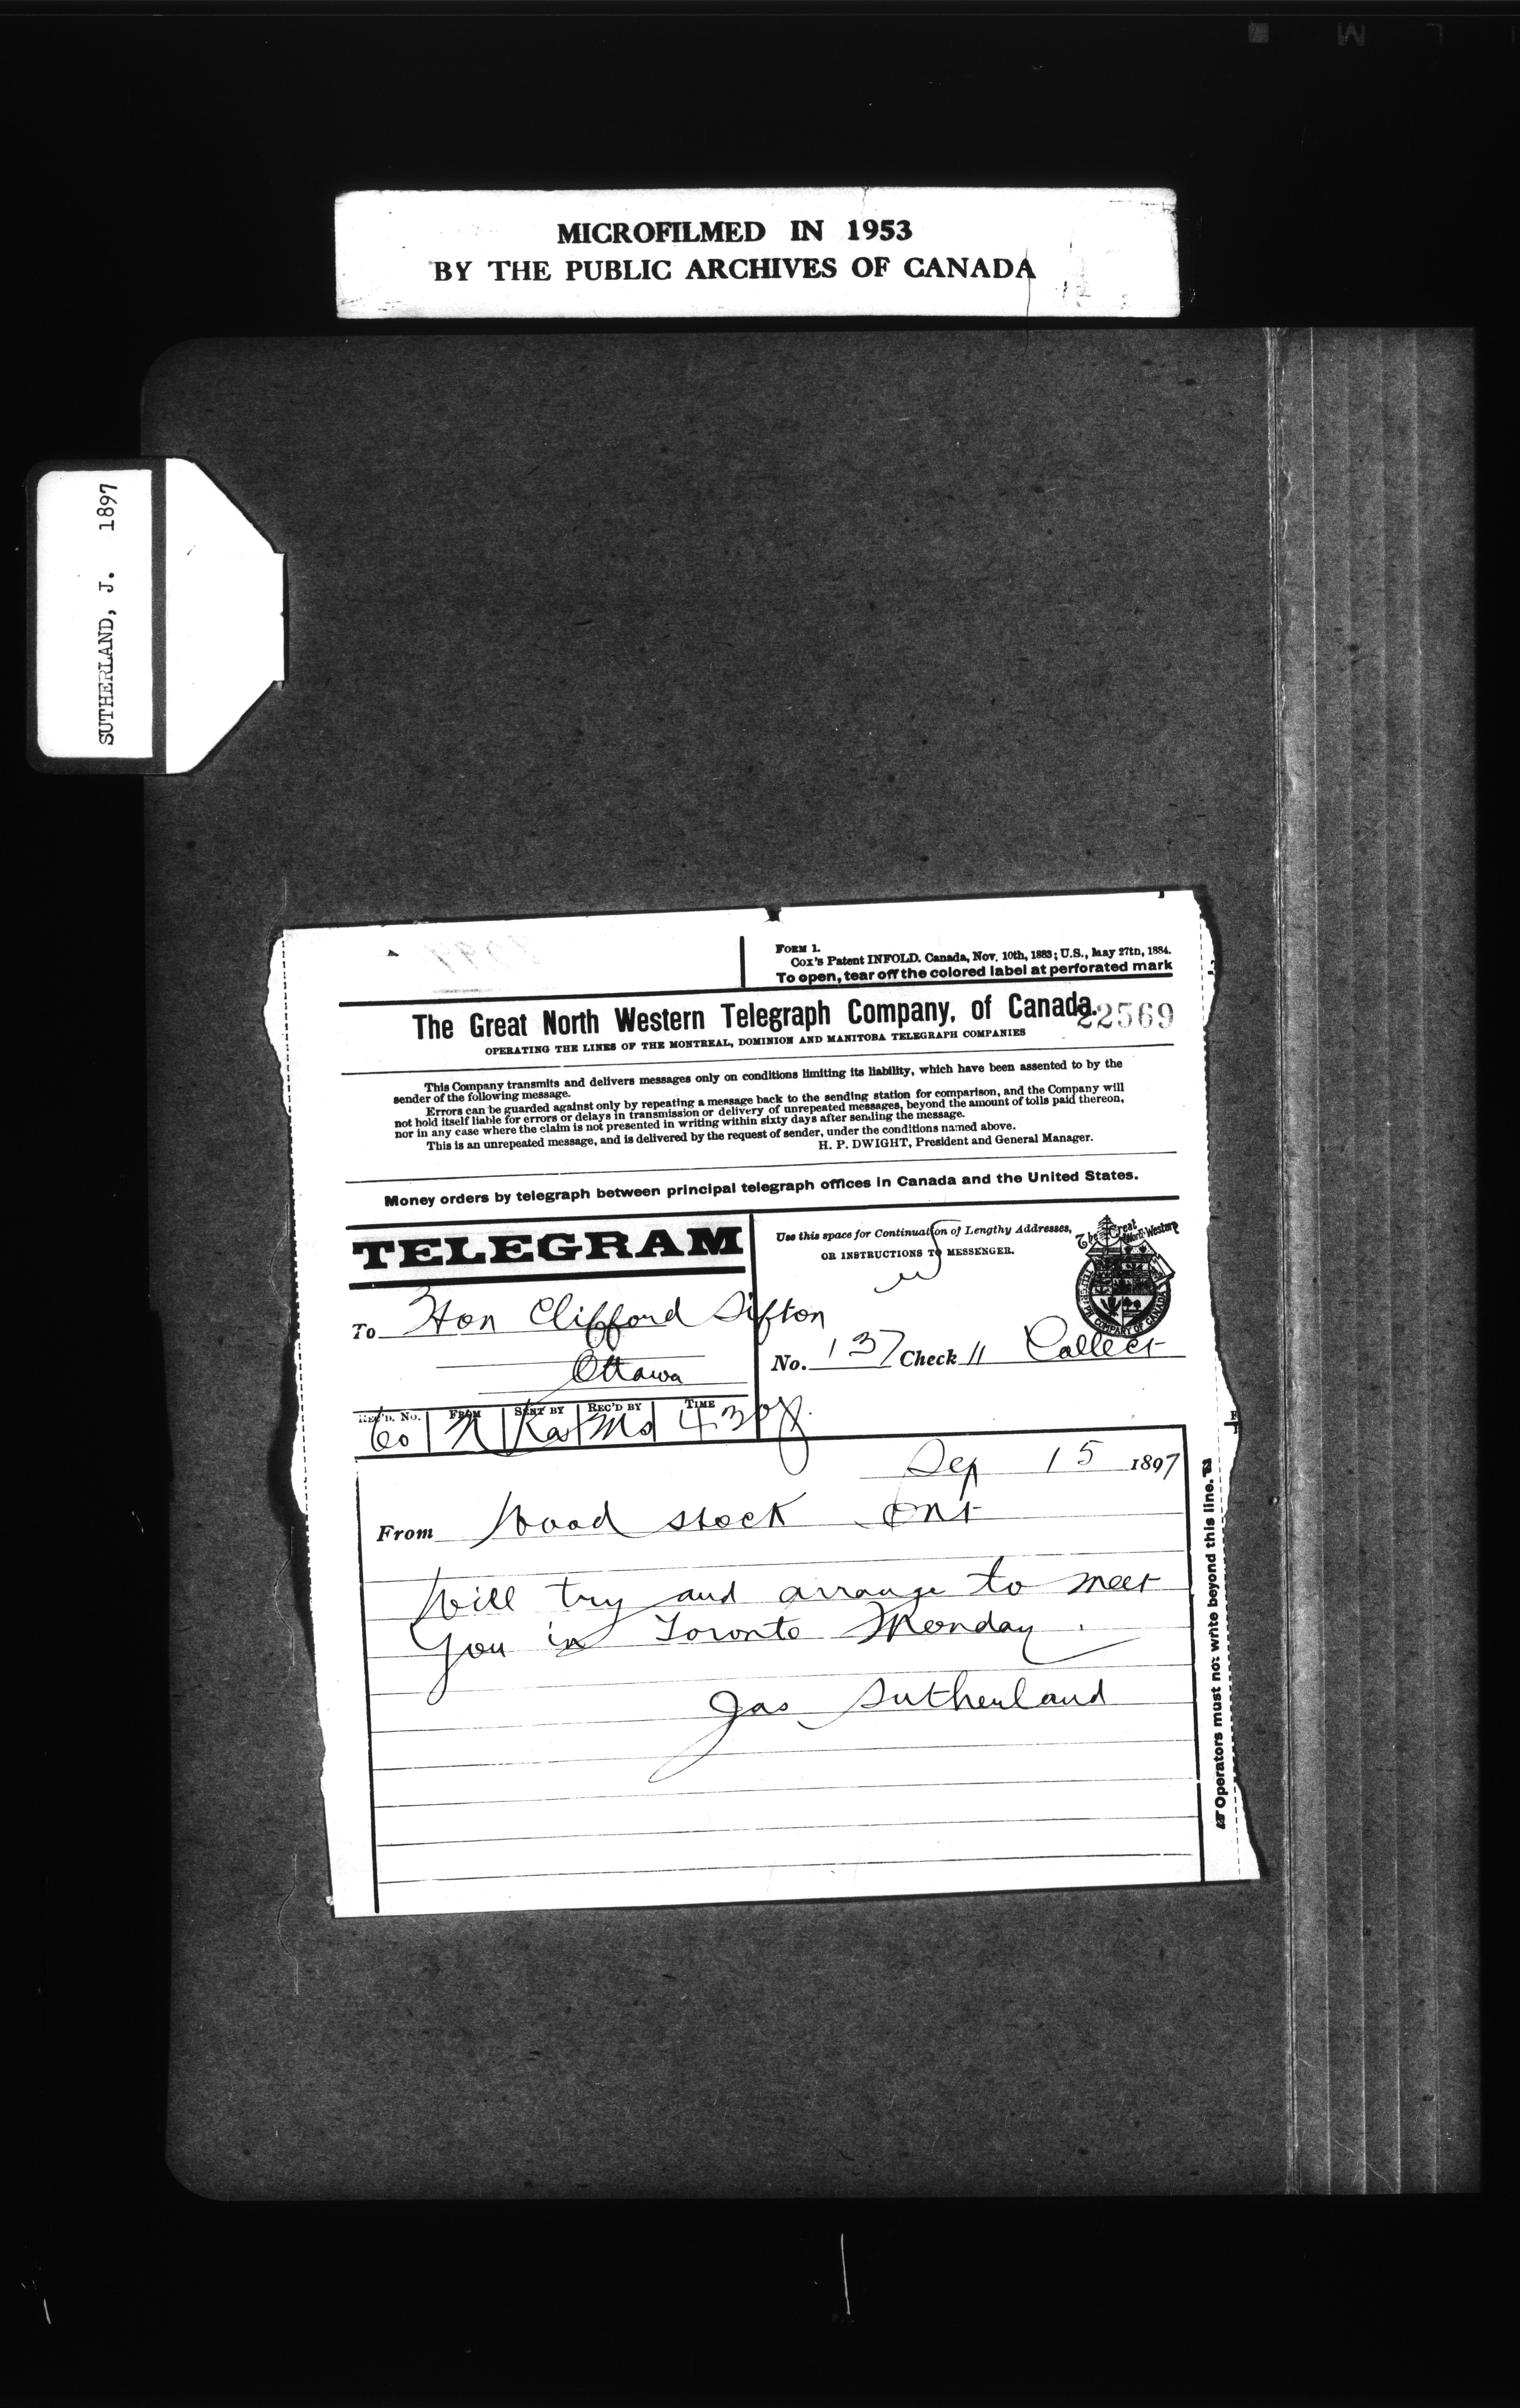 MICROFILMED IN 1953
BY THE PUBLIC ARCHIVES OF CANADA
SUTHERLAND, J. 1897
FORM 1.
Cox's Patent INFOLD. Canada, Nov. 10th, 1883; U.S., May 27th, 1884.
To open, tear off the colored label at perforated mark
The Great North Western Telegraph Company, of Canada.
22569
OPERATING THE LINES OF THE MONTREAL, DOMINION AND MANITOBA TELEGRAPH COMPANIES
This Company transmits and delivers messages only on conditions limiting its liability, which have been assented to by the
sender of the following message.
Errors can be guarded against only by repeating a message back to the sending station for comparison, and the Company will
not hold itself liable for errors or delays in transmission or delivery of unrepeated messages, beyond the amount of tolls paid thereon,
nor in any case where the claim is not presented in writing within sixty days after sending the message.
This is an unrepeated message, and is delivered by the request of sender, under the conditions named above.
H. P. DWIGHT, President and General Manager.
Money orders by telegraph between principal telegraph offices in Canada and the United States.
TELEGRAM
Use this space for Continuation of Lengthy Addresses,
OR INSTRUCTIONS TO MESSENGER.
The Great North Western
TELEGRAPH COMPANY OF CANADA
To Hon Clifford Sifton
Ottawa
No. 137 Check 11 Collect
REC'D. No. FROM SENT BY REC'D BY TIME
60 N Ka Ms 430
Sep 15 1897
From Wood stock Ont
Will try and arrange to meet
you in Toronto Monday.
Jas Sutherland
Operators must not write beyond this line.